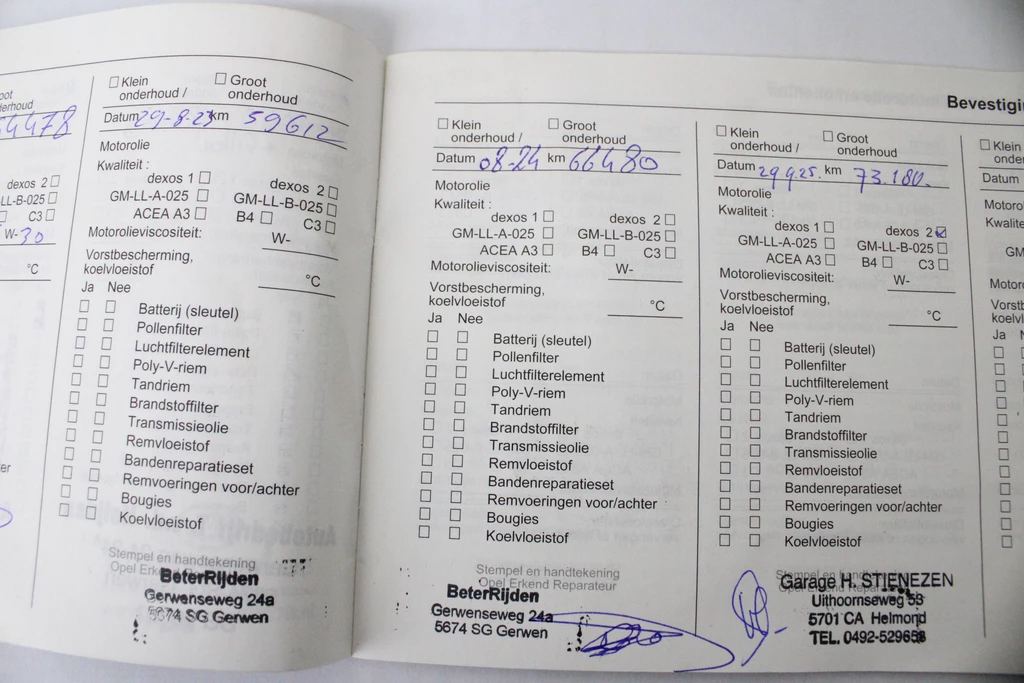 oot
derhoud
64478
dexos 2
LL-B-025
C3
W-30
°C
er
Klein onderhoud / Groot onderhoud
Datum 29-8-23 km 59612
Motorolie
Kwaliteit :
dexos 1 dexos 2
GM-LL-A-025 GM-LL-B-025
ACEA A3 B4 C3
Motorolieviscositeit: W-
Vorstbescherming,
koelvloeistof °C
Ja Nee
Batterij (sleutel)
Pollenfilter
Luchtfilterelement
Poly-V-riem
Tandriem
Brandstoffilter
Transmissieolie
Remvloeistof
Bandenreparatieset
Remvoeringen voor/achter
Bougies
Koelvloeistof
Stempel en handtekening
Opel Erkend Reparateur
BeterRijden
Gerwenseweg 24a
5674 SG Gerwen
Bevestigin
Klein onderhoud / Groot onderhoud
Datum 08-24 km 66480
Motorolie
Kwaliteit :
dexos 1 dexos 2
GM-LL-A-025 GM-LL-B-025
ACEA A3 B4 C3
Motorolieviscositeit: W-
Vorstbescherming,
koelvloeistof °C
Ja Nee
Batterij (sleutel)
Pollenfilter
Luchtfilterelement
Poly-V-riem
Tandriem
Brandstoffilter
Transmissieolie
Remvloeistof
Bandenreparatieset
Remvoeringen voor/achter
Bougies
Koelvloeistof
Stempel en handtekening
Opel Erkend Reparateur
BeterRijden
Gerwenseweg 24a
5674 SG Gerwen
Klein onderhoud / Groot onderhoud
Datum 29 9 25. km 73.180.
Motorolie
Kwaliteit :
dexos 1 dexos 2
GM-LL-A-025 GM-LL-B-025
ACEA A3 B4 C3
Motorolieviscositeit: W-
Vorstbescherming,
koelvloeistof °C
Ja Nee
Batterij (sleutel)
Pollenfilter
Luchtfilterelement
Poly-V-riem
Tandriem
Brandstoffilter
Transmissieolie
Remvloeistof
Bandenreparatieset
Remvoeringen voor/achter
Bougies
Koelvloeistof
Stempel en handtekening
Opel Erkend Reparateur
Garage H. STIENEZEN
Uithoornseweg 53
5701 CA Helmond
TEL. 0492-529658
Klein
onderh
Datum
Motoro
Kwalite
GM
Motorol
Vorstb
koelvl
Ja N